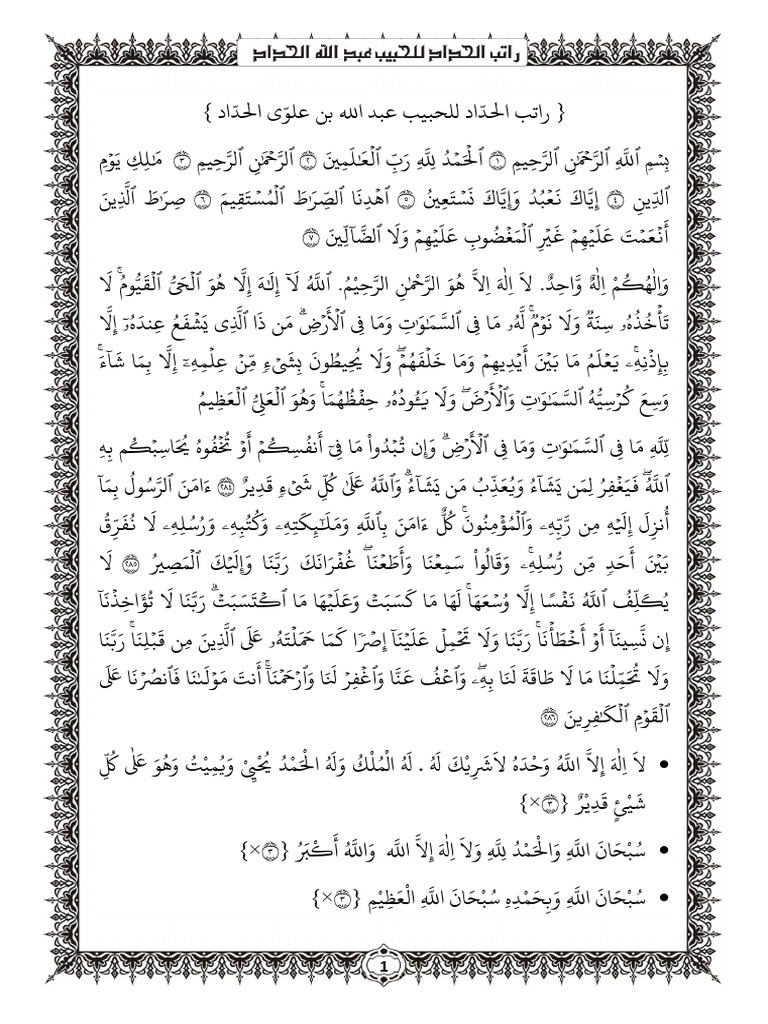 راتب الحداد للحبيب عبد الله الحداد
{ راتب الحدّاد للحبيب عبد الله بن علوّى الحدّاد }
بِسْمِ ٱللَّهِ ٱلرَّحْمَٰنِ ٱلرَّحِيمِ ۝١ ٱلْحَمْدُ لِلَّهِ رَبِّ ٱلْعَٰلَمِينَ ۝٢ ٱلرَّحْمَٰنِ ٱلرَّحِيمِ ۝٣ مَٰلِكِ يَوْمِ
ٱلدِّينِ ۝٤ إِيَّاكَ نَعْبُدُ وَإِيَّاكَ نَسْتَعِينُ ۝٥ ٱهْدِنَا ٱلصِّرَٰطَ ٱلْمُسْتَقِيمَ ۝٦ صِرَٰطَ ٱلَّذِينَ
أَنْعَمْتَ عَلَيْهِمْ غَيْرِ ٱلْمَغْضُوبِ عَلَيْهِمْ وَلَا ٱلضَّآلِّينَ ۝٧
وَاِلٰهُكُمْ اِلٰهٌ وَّاحِدٌ. لاَ اِلٰهَ اِلاَّ هُوَ الرَّحْمٰنُ الرَّحِيْمُ. ٱللَّهُ لَآ إِلَٰهَ إِلَّا هُوَ ٱلْحَىُّ ٱلْقَيُّومُۚ لَا
تَأْخُذُهُۥ سِنَةٌ وَلَا نَوْمٌۚ لَّهُۥ مَا فِى ٱلسَّمَٰوَٰتِ وَمَا فِى ٱلْأَرْضِۗ مَن ذَا ٱلَّذِى يَشْفَعُ عِندَهُۥٓ إِلَّا
بِإِذْنِهِۦۚ يَعْلَمُ مَا بَيْنَ أَيْدِيهِمْ وَمَا خَلْفَهُمْۖ وَلَا يُحِيطُونَ بِشَىْءٍ مِّنْ عِلْمِهِۦٓ إِلَّا بِمَا شَآءَۚ
وَسِعَ كُرْسِيُّهُ ٱلسَّمَٰوَٰتِ وَٱلْأَرْضَۖ وَلَا يَـُٔودُهُۥ حِفْظُهُمَاۚ وَهُوَ ٱلْعَلِىُّ ٱلْعَظِيمُ
لِّلَّهِ مَا فِى ٱلسَّمَٰوَٰتِ وَمَا فِى ٱلْأَرْضِۗ وَإِن تُبْدُوا۟ مَا فِىٓ أَنفُسِكُمْ أَوْ تُخْفُوهُ يُحَاسِبْكُم بِهِ
ٱللَّهُۖ فَيَغْفِرُ لِمَن يَشَآءُ وَيُعَذِّبُ مَن يَشَآءُۗ وَٱللَّهُ عَلَىٰ كُلِّ شَىْءٍ قَدِيرٌ ۝٢٨٤ ءَامَنَ ٱلرَّسُولُ بِمَآ
أُنزِلَ إِلَيْهِ مِن رَّبِّهِۦ وَٱلْمُؤْمِنُونَۚ كُلٌّ ءَامَنَ بِٱللَّهِ وَمَلَٰٓئِكَتِهِۦ وَكُتُبِهِۦ وَرُسُلِهِۦ لَا نُفَرِّقُ
بَيْنَ أَحَدٍ مِّن رُّسُلِهِۦۚ وَقَالُوا۟ سَمِعْنَا وَأَطَعْنَاۖ غُفْرَانَكَ رَبَّنَا وَإِلَيْكَ ٱلْمَصِيرُ ۝٢٨٥ لَا
يُكَلِّفُ ٱللَّهُ نَفْسًا إِلَّا وُسْعَهَاۚ لَهَا مَا كَسَبَتْ وَعَلَيْهَا مَا ٱكْتَسَبَتْۗ رَبَّنَا لَا تُؤَاخِذْنَآ
إِن نَّسِينَآ أَوْ أَخْطَأْنَاۚ رَبَّنَا وَلَا تَحْمِلْ عَلَيْنَآ إِصْرًا كَمَا حَمَلْتَهُۥ عَلَى ٱلَّذِينَ مِن قَبْلِنَاۚ رَبَّنَا
وَلَا تُحَمِّلْنَا مَا لَا طَاقَةَ لَنَا بِهِۦۖ وَٱعْفُ عَنَّا وَٱغْفِرْ لَنَا وَٱرْحَمْنَآۚ أَنتَ مَوْلَىٰنَا فَٱنصُرْنَا عَلَى
ٱلْقَوْمِ ٱلْكَٰفِرِينَ ۝٢٨٦
• لاَ اِلٰهَ إِلاَّ اللَّهُ وَحْدَهُ لاَشَرِيْكَ لَهُ . لَهُ الْمُلْكُ وَلَهُ الْحَمْدُ يُحْيِيْ وَيُمِيْتُ وَهُوَ عَلٰى كُلِّ
شَيْئٍ قَدِيْرٌ {۝٣×}
• سُبْحَانَ اللَّهِ وَالْحَمْدُ لِلَّهِ وَلاَ اِلٰهَ إِلاَّ اللَّه وَاللَّهُ أَكْبَرُ {۝٣×}
• سُبْحَانَ اللَّهِ وَبِحَمْدِهِ سُبْحَانَ اللَّهِ الْعَظِيْمِ {۝٣×}
1